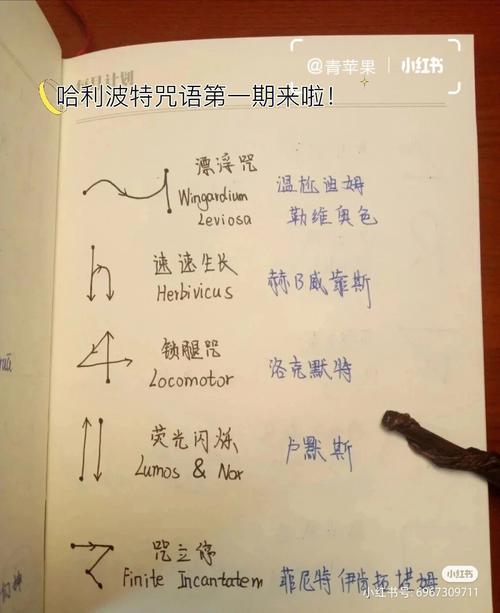 @青苹果 小红书
每日计划
哈利波特咒语第一期来啦!
漂浮咒
Wingardium
Leviosa
温尬迪姆
勒维奥色
速速生长
Herbivicus
赫B威蕥斯
锁腿咒
Locomotor
洛克默特
荧光闪烁
Lumos & Nox
卢默斯
咒立停
Finite Incantatem
菲尼特
小红书
小红书号:6967309711